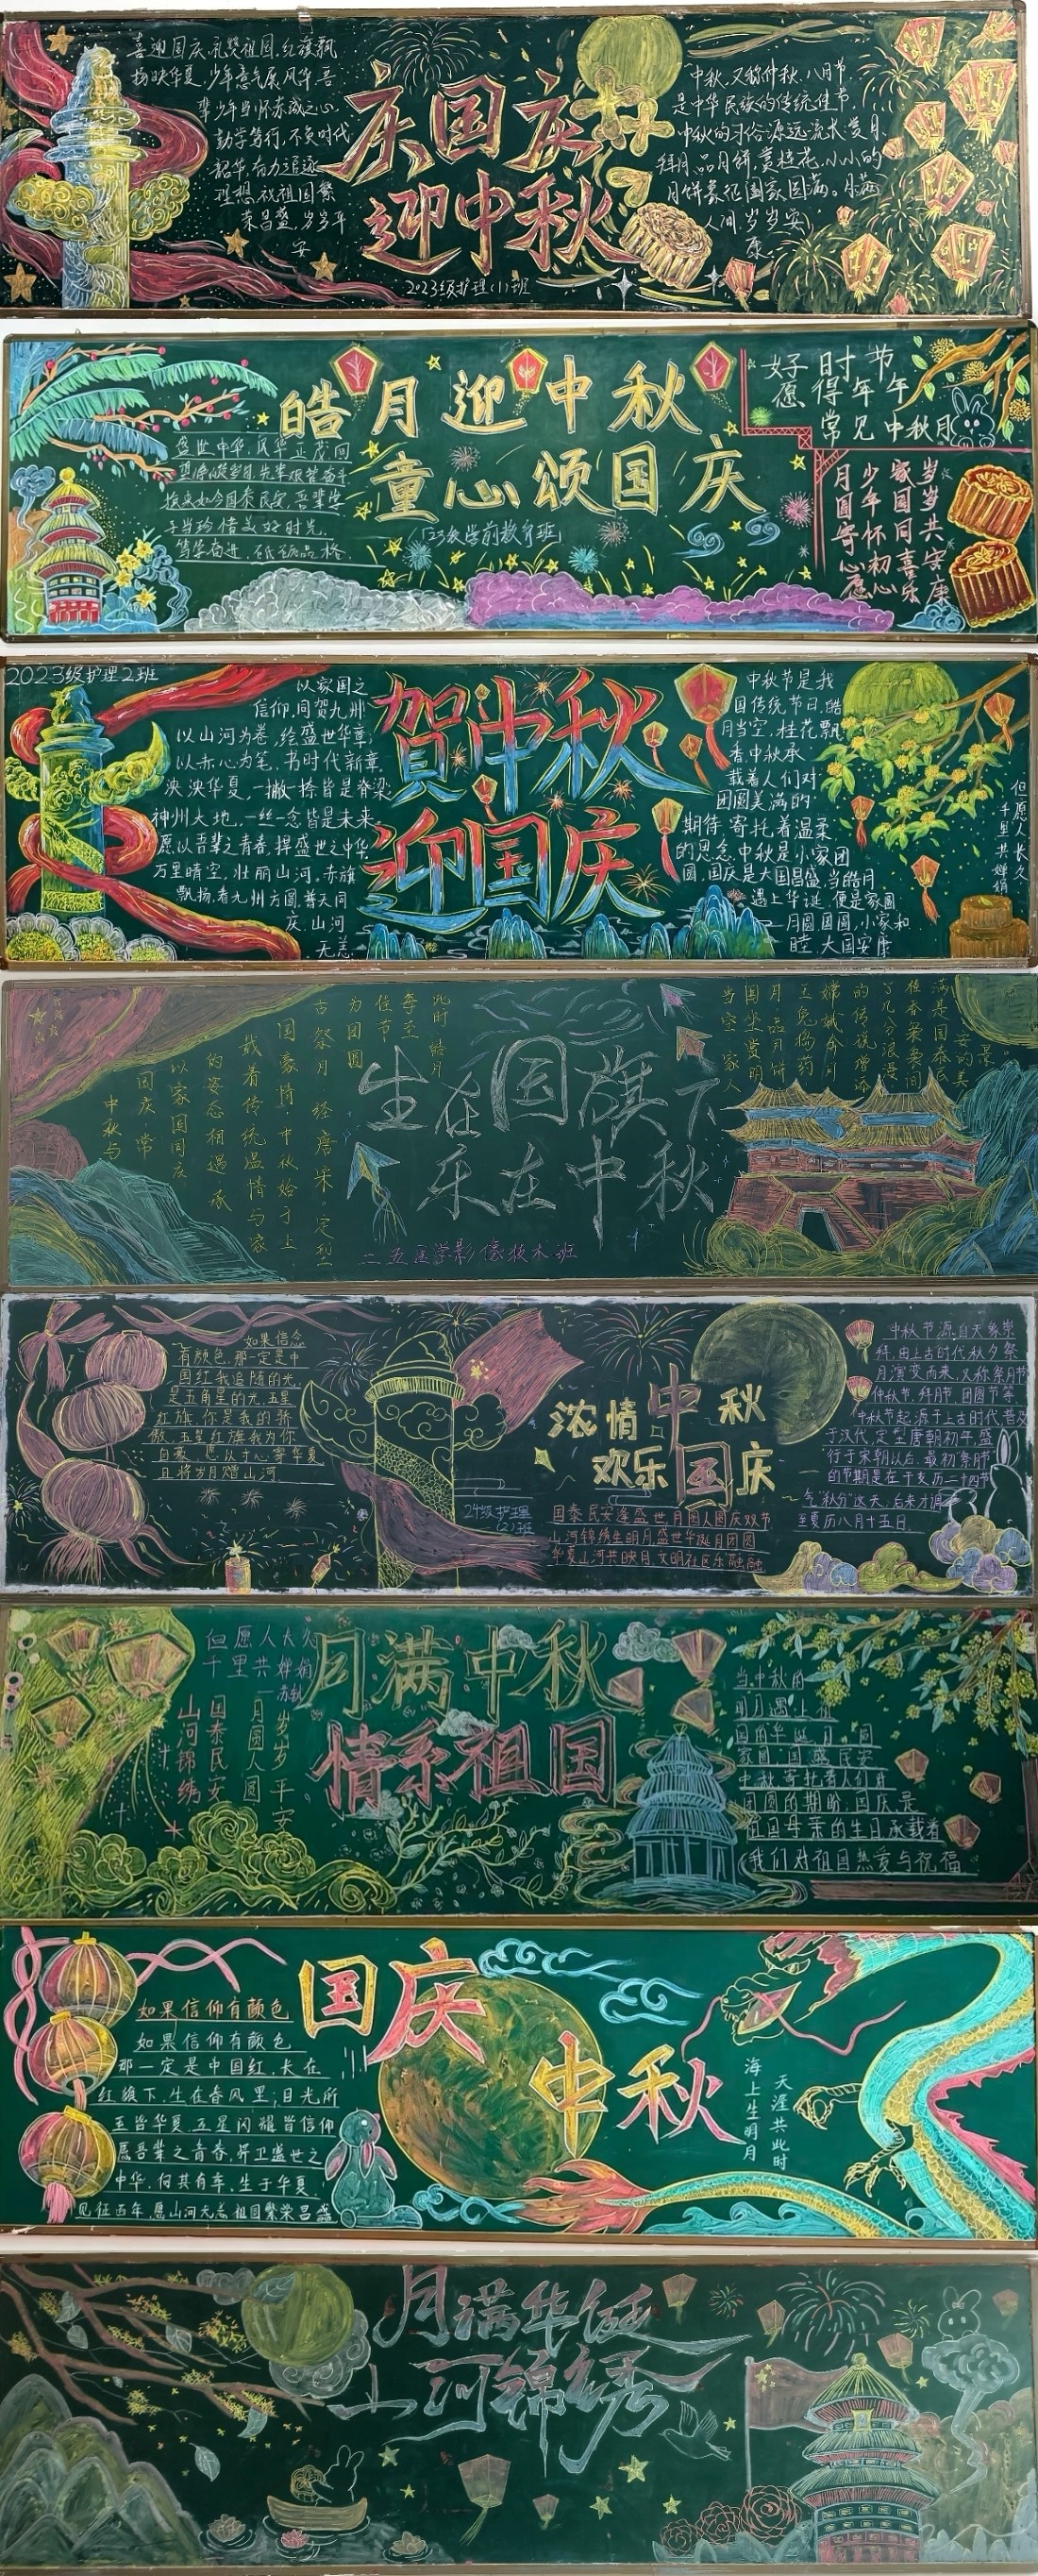 喜迎国庆,礼赞祖国,红旗飘
扬映华夏,少年意气展风华,吾
辈少年当怀赤诚之心
勤学笃行,不负时代
韶华,奋力追逐
理想,祝祖国繁
荣昌盛,岁岁平
安
庆国庆
迎中秋
2023级护理(1)班
中秋,又称仲秋、八月节
是中华民族的传统佳节
中秋的习俗源远流长,赏月
拜月、品月饼,赏桂花,小小的
月饼象征阖家圆满。月满
人间,岁岁安
康
皓月迎中秋
童心颂国庆
「23级学前教育班」
盛世中华,风华正茂,回
子当珍惜美好时光,
笃学奋进,砥砺品格.
好时节
愿得年年
常见中秋月
岁岁共安康
家国同喜乐
少年怀初心
月圆寄心愿
2023级护理2班
以家国之
信仰,同贺九州
以山河为卷,绘盛世华章;
以赤心为笔,书时代新章
泱泱华夏,一撇一捺皆是脊梁
神州大地,一丝一念皆是未来。
愿以吾辈之青春,捍盛世之中华
万里晴空,壮丽山河。赤旗
飘扬,看九州方圆,普天同
庆,山河
无恙
賀中秋
迎国庆
中秋节是我
国传统节日,皓
月当空,桂花飘
香,中秋承
载着人们对
团圆美满的
期待,寄托着温柔
的思念,中秋是小家团
圆,国庆是大国昌盛,当皓月
遇上华诞,便是家圆
月圆国圆,小家和
睦,大国安康
但愿人长久,
千里共婵娟
此时皓月
每至
佳节
为团圆
古祭月,经唐宋定型
国豪情.中秋始于上
载着传统温情与家
的姿态相遇,承
以家国同庆
国庆,常
中秋与
生在国旗下
乐在中秋
二五医学影像技术班
满是国泰民安的美
桂香袅袅间
了几分浪漫
的传说增添
嫦娥奔月
玉兔捣药
月品月饼
围坐赏明
当空,家人
如果信念
有颜色,那一定是中
国红,我追随的光,
是五角星的光,五星
红旗,你是我的骄
傲,五星红旗我为你
自豪,愿以寸心寄华夏
且将岁月赠山河
24级护理
(2)班
浓情中秋
欢乐国庆
国泰民安逢盛世,月圆人圆庆双节
山河锦绣坐明月,盛世华诞月团圆
华夏山河共映月,文明社区乐融融
中秋节源自天象崇
拜,由上古时代秋夕祭
月演变而来,又称祭月节
仲秋节,拜月节,团圆节等
中秋节起源于上古时代,普及
于汉代,定型唐朝初年,盛
行于宋朝以后,最初祭月节
的节期是在干支历二十四节
气"秋分"这天,后来才调
至夏历八月十五日.
但愿人长久
千里共婵娟
—苏轼
岁岁平安
月圆人圆
国泰民安
山河锦绣
月满中秋
情系祖国
当中秋的
明月遇上祖
国的华诞,月圆
家圆,国盛民安
中秋寄托着人们对
团圆的期盼,国庆是
祖国母亲的生日,承载着
我们对祖国热爱与祝福
国庆
中秋
如果信仰有颜色
如果信仰有颜色
那一定是中国红,长在
红旗下,生在春风里;目光所
至皆华夏,五星闪耀皆信仰
愿吾辈之青春,捍卫盛世之
中华,何其有幸,生于华夏,
见证百年,愿山河无恙,祖国繁荣昌盛
海上生明月
天涯共此时
月满华诞
山河锦绣